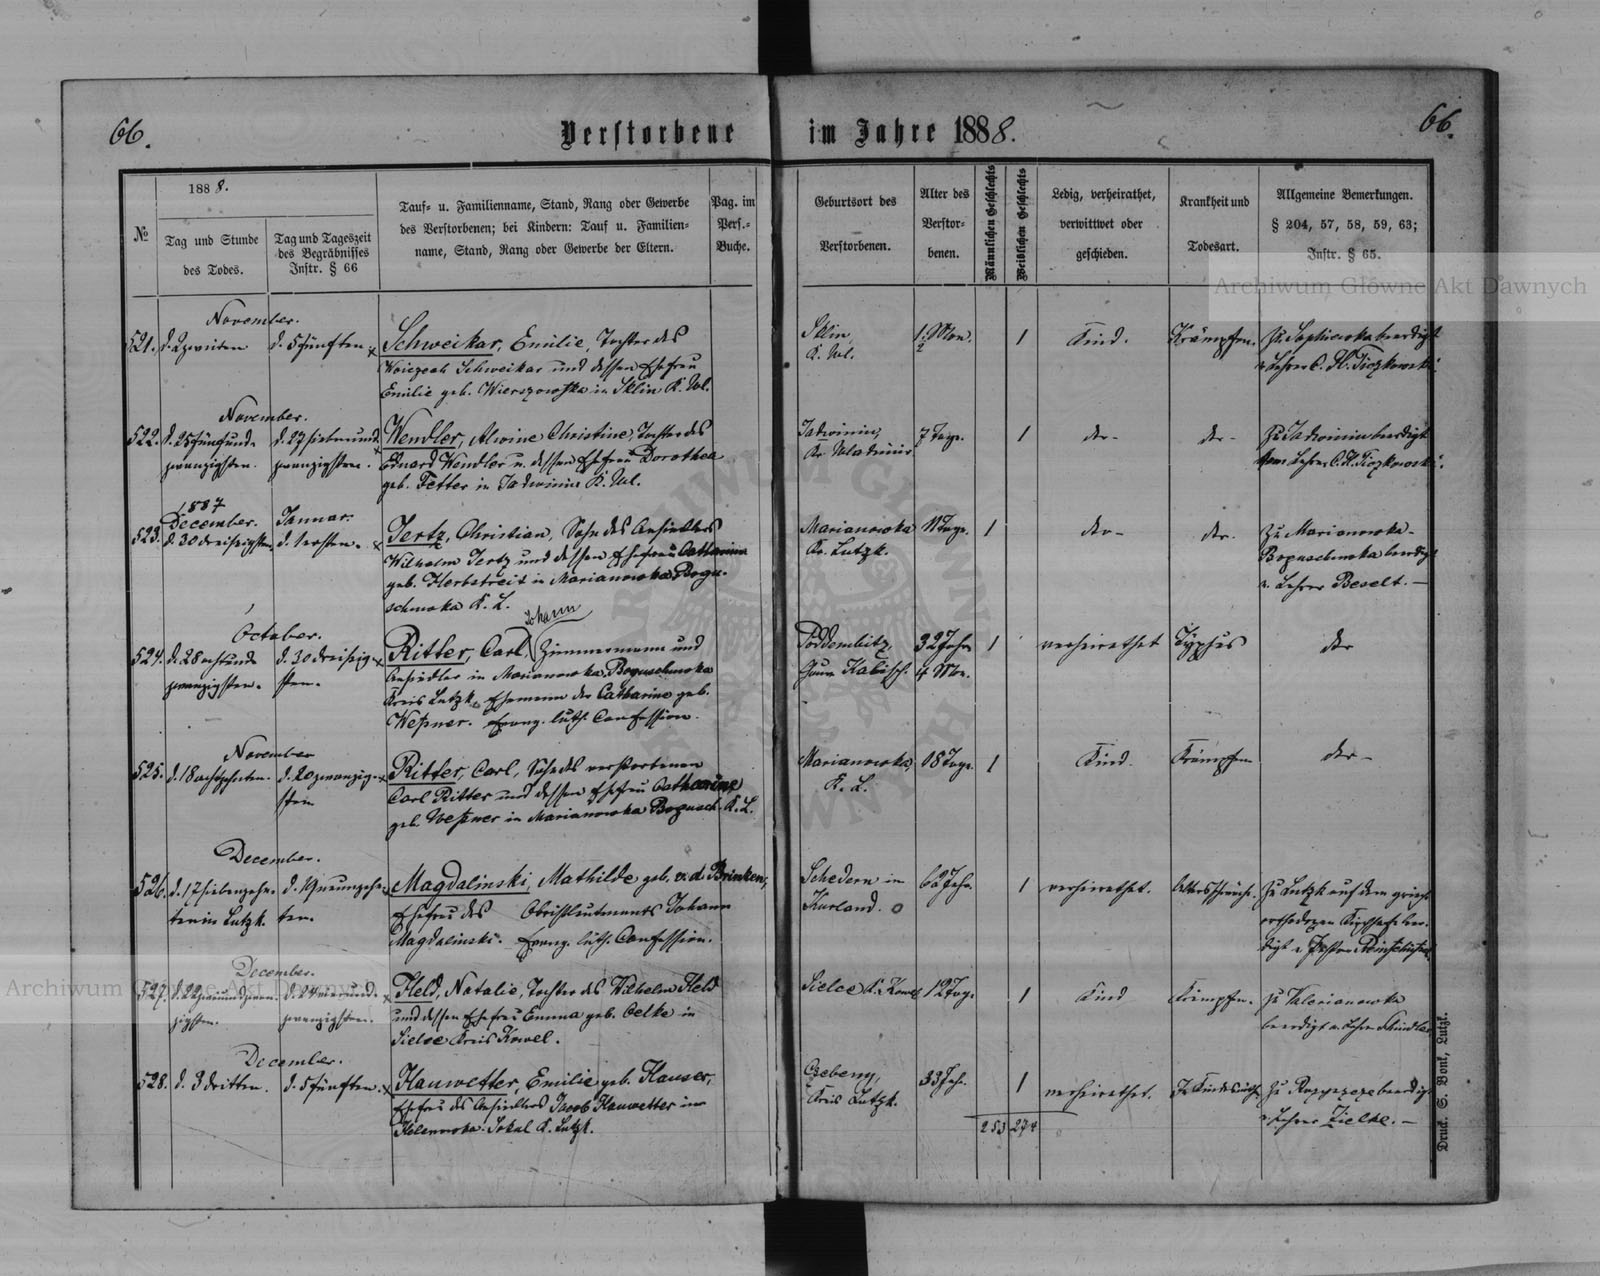 66.
Verstorbene im Jahre 1888.
66.
№
1888.
Tag und Stunde
des Todes.
Tag und Tageszeit
des Begräbnisses
Instr. § 66
Tauf- u. Familienname, Stand, Rang oder Gewerbe
des Verstorbenen; bei Kindern: Tauf u. Familien-
name, Stand, Rang oder Gewerbe der Eltern.
Pag. im
Pers.-
Buche.
Geburtsort des
Verstorbenen.
Alter des
Verstor-
benen.
Männlichen Geschlechts
Weiblichen Geschlechts
Ledig, verheirathet,
verwittwet oder
geschieden.
Krankheit und
Todesart.
Allgemeine Bemerkungen.
§ 204, 57, 58, 59, 63;
Instr. § 65.
Archiwum Główne Akt Dawnych
November.
521. d. 2 zweiten
d. 5 fünften
Schweikar, Emilie, Tochter des
Woiczech Schweikar und dessen Ehefrau
Emilie geb. Wierszowska in Sklin K. Wl.
Sklin,
K. Wl.
1
Kind.
Krämpfen.
Zu Sophiewka beerdigt
November.
522. d. 25 fünfund-
zwanzigsten.
d. 27 siebenund
zwanzigsten.
Wendler, Alwine Christine, Tochter des
Eduard Wendler u. dessen Ehefrau Dorothea
geb. Fetter in Jadwinin K. Wl.
Jadwinin,
Kr. Wladimir
7 Tage.
1
der-
der-
Zu Jadwinin beerdigt
vom Lehrer
1887
December.
523. d. 30 dreissigsten.
Januar.
d. 1 ersten.
Jertz, Christian, Sohn des Ansiedlers
Wilhelm Jertz und dessen Ehefrau Catharina
geb. Herbstreit in Marianowka Bogu-
schowka K. L.
Marianowka
Kr. Lutzk.
11 Tage.
1
der-
der.
Zu Marianowka-
Boguschowka beerdigt
v. Lehrer Beselt. —
October.
524. d. 28 achtund
zwanzigsten.
d. 30 dreissig-
sten.
Johann
Ritter, Carl, Zimmermann und
Ansiedler in Marianowka Boguschowka
Kreis Lutzk, Ehemann der Catharine geb.
Weßner. Evang. luth. Confession.
Poddembitz,
Gouv. Kalisch.
32 Jahre
4 Mon.
1
verheirathet
Typhus
der
November
525. d. 18 achtzehnten.
d. 20 zwanzig-
sten
Ritter, Carl, Sohn des verstorbenen
Carl Ritter und dessen Ehefrau Catharine
geb. Weßner in Marianowka Bogusch. K. L.
Marianowka,
K. L.
18 Tage.
1
Kind.
Krämpfen
der-
December.
526. d. 17 siebenzehn-
ten in Lutzk.
d. 19 neunzehn-
ten.
Magdalinski, Mathilde geb. v. d. Brinken,
Ehefrau des Obristleutnants Johann
Magdalinski. Evang. luth. Confession.
Schedern in
Kurland.
62 Jahr.
1
verheirathet.
Altersschwäche.
Zu Lutzk auf dem griech.
orthodoxen Kirchhofe beer-
digt v. Pastor
December.
527. d. 22 zweiundzwan-
zigsten.
d. 24 vierund-
zwanzigsten.
Held, Natalie, Tochter des Wilhelm Held
und dessen Ehefrau Emma geb. Oelke in
Sielce Kreis Kowel.
Sielce K. Kowel
12 Tage.
1
Kind
Krämpfen.
Zu Valerianowka
beerdigt v. Lehrer
Archiwum Główne Akt Dawnych
December.
528. d. 3 dritten.
d. 5 fünften.
Hauwetter, Emilie geb. Hauser,
Ehefrau des Ansiedlers Jacob Hauwetter in
Helenowka-Sokul K. Lutzk.
Czebeny,
Kreis Lutzk.
33 Jahr.
1
verheirathet.
Zu Rozyszcze beerdigt
v. Lehrer Zielke. —
253 274
Druck. S. Bonk, Lutzk.